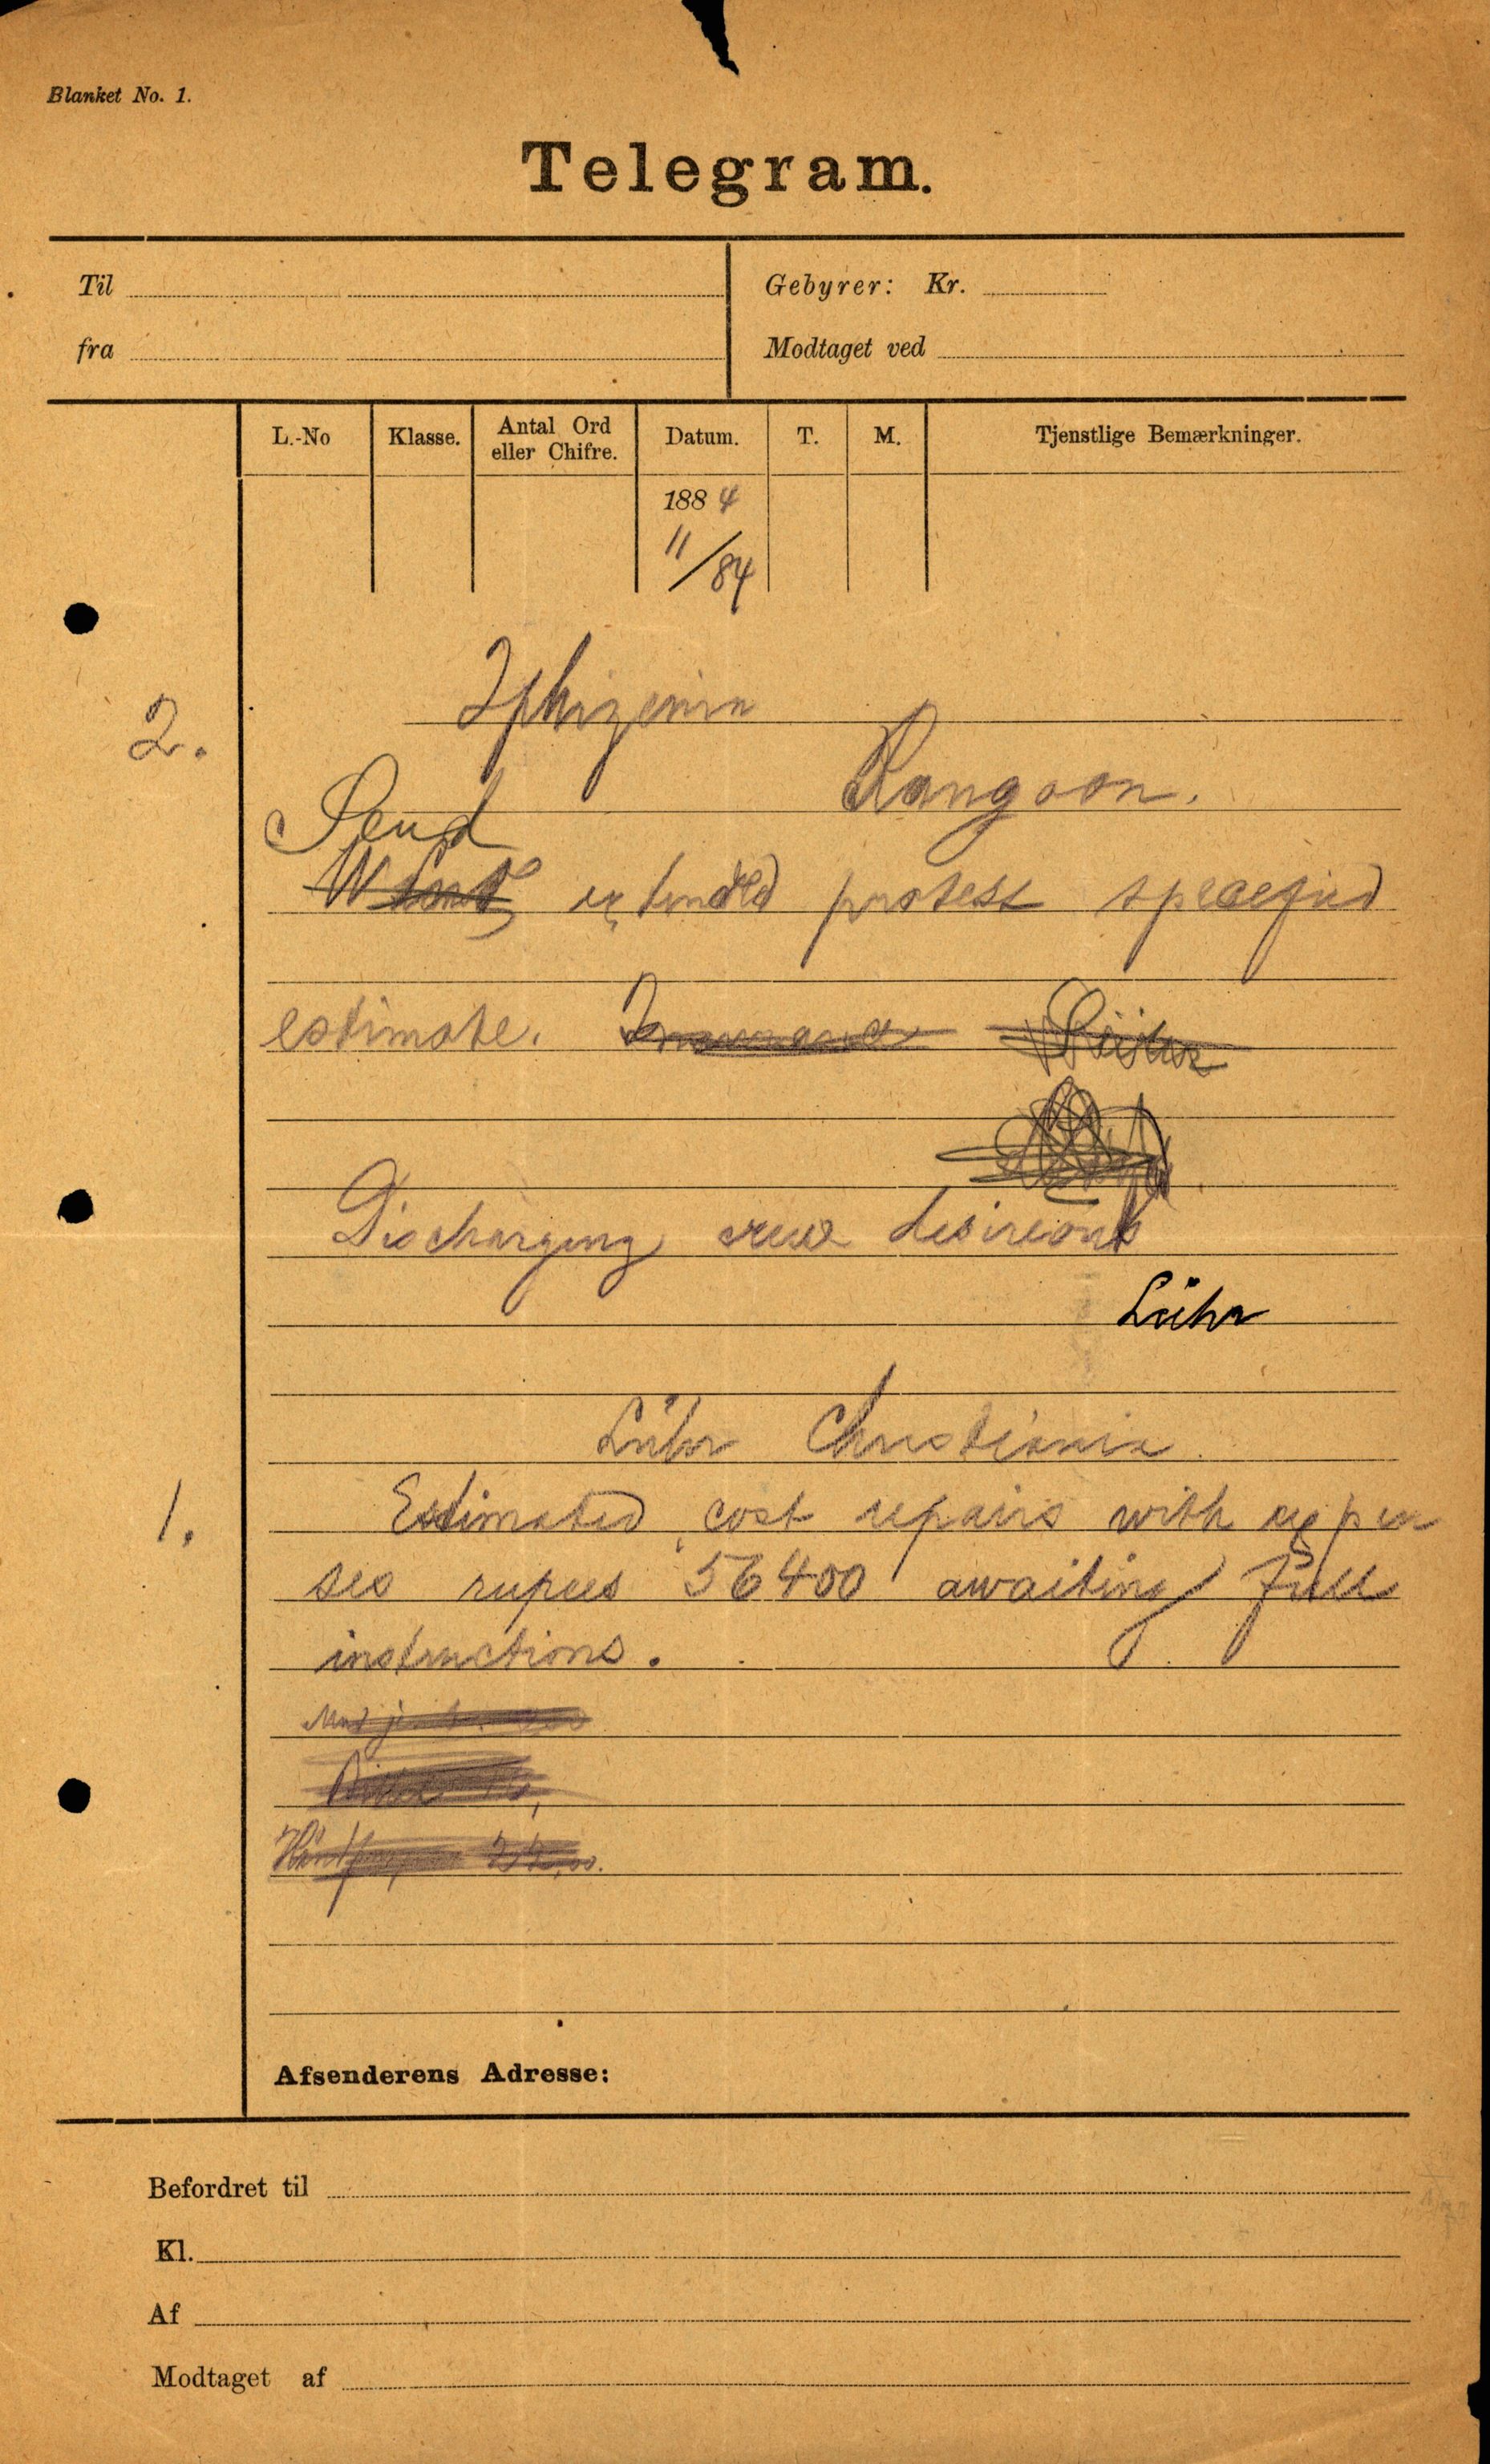 Blanket No. 1.
Telegram.
Til
Gebyrer: Kr.
fra
Modtaget ved
L.-No Klasse. Antal Ord eller Chifre. Datum. T. M. Tjenstlige Bemærkninger.
1884
11/84
2.
Iphigenia
Rangoon.
Send
extended protest specefied
estimate.
Discharging crew desireous
Lühr
Lühr Christiania
1.
Estimated cost repairs with expen
ses rupees 56400 awaiting full
instructions.
Afsenderens Adresse:
Befordret til
Kl.
Af
Modtaget af